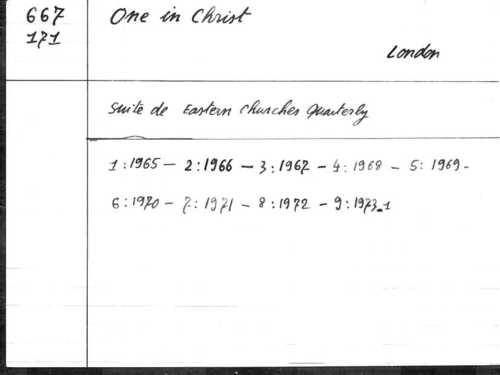 667
171
One in Christ
London
Suite de Eastern Churches Quarterly
1:1965 - 2:1966 - 3:1967 - 4:1968 - 5:1969 -
6:1970 - 7:1971 - 8:1972 - 9:1973.1